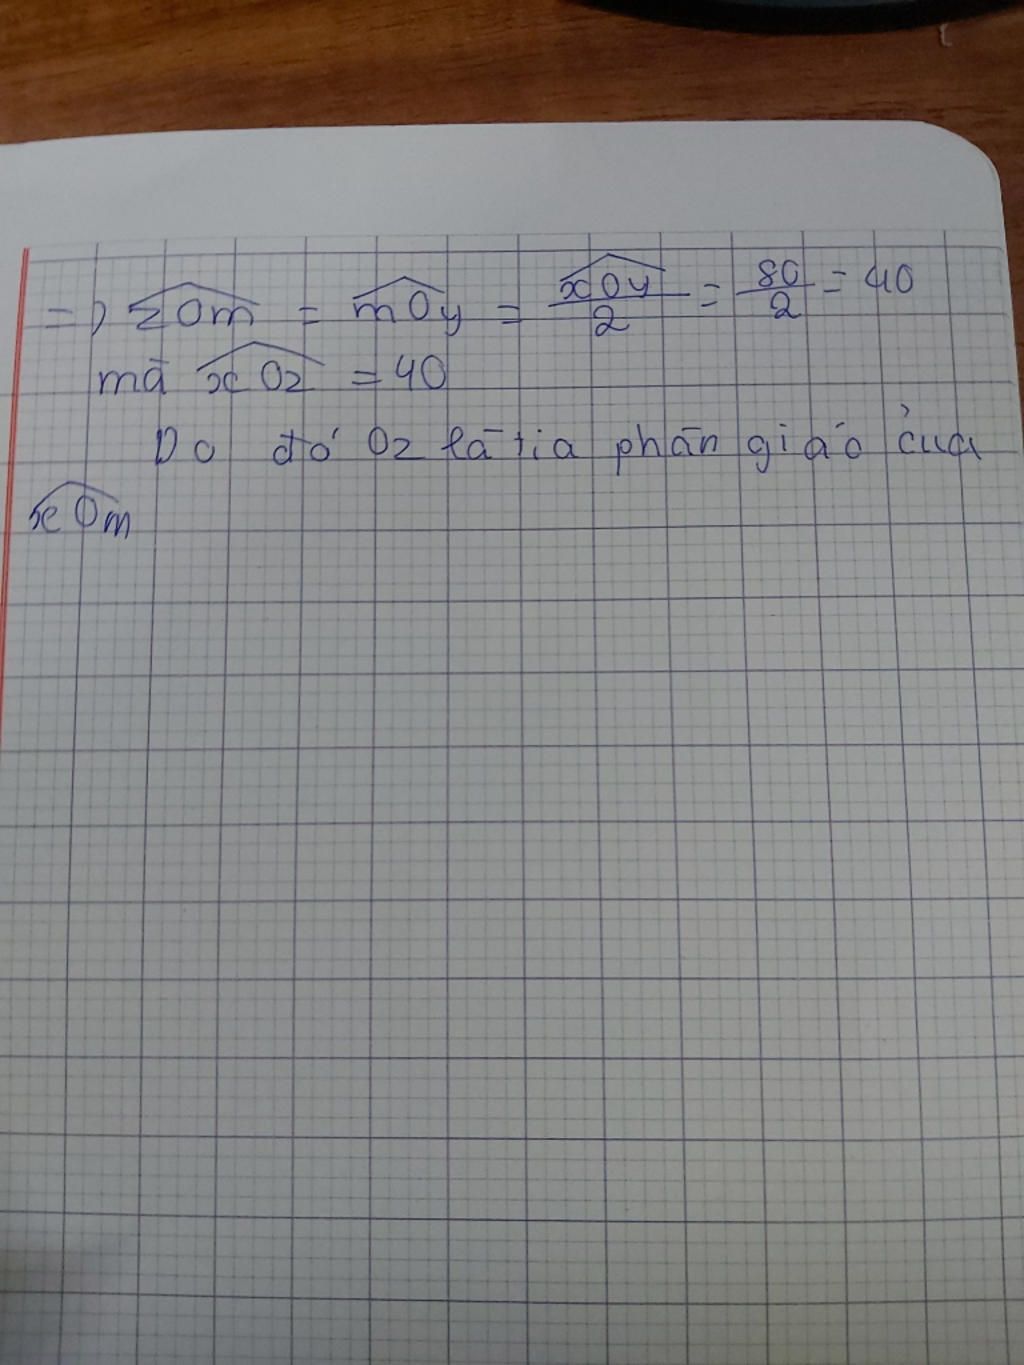 =) zOm = mOy = xOy/2 = 80/2 = 40
mà xOz = 40
Do đó Oz là tia phân giáo của
xOm